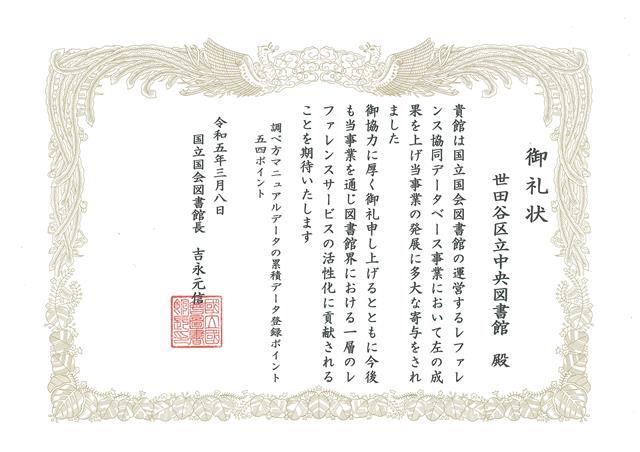 御礼状
世田谷区立中央図書館 殿
貴館は国立国会図書館の運営するレファレ
ンス協同データベース事業において左の成
果を上げ当事業の発展に多大な寄与をされ
ました
御協力に厚く御礼申し上げるとともに今後
も当事業を通じ図書館界における一層のレ
ファレンスサービスの活性化に貢献される
ことを期待いたします
調べ方マニュアルデータの累積データ登録ポイント
五四ポイント
令和五年三月八日
国立国会図書館長 吉永元信